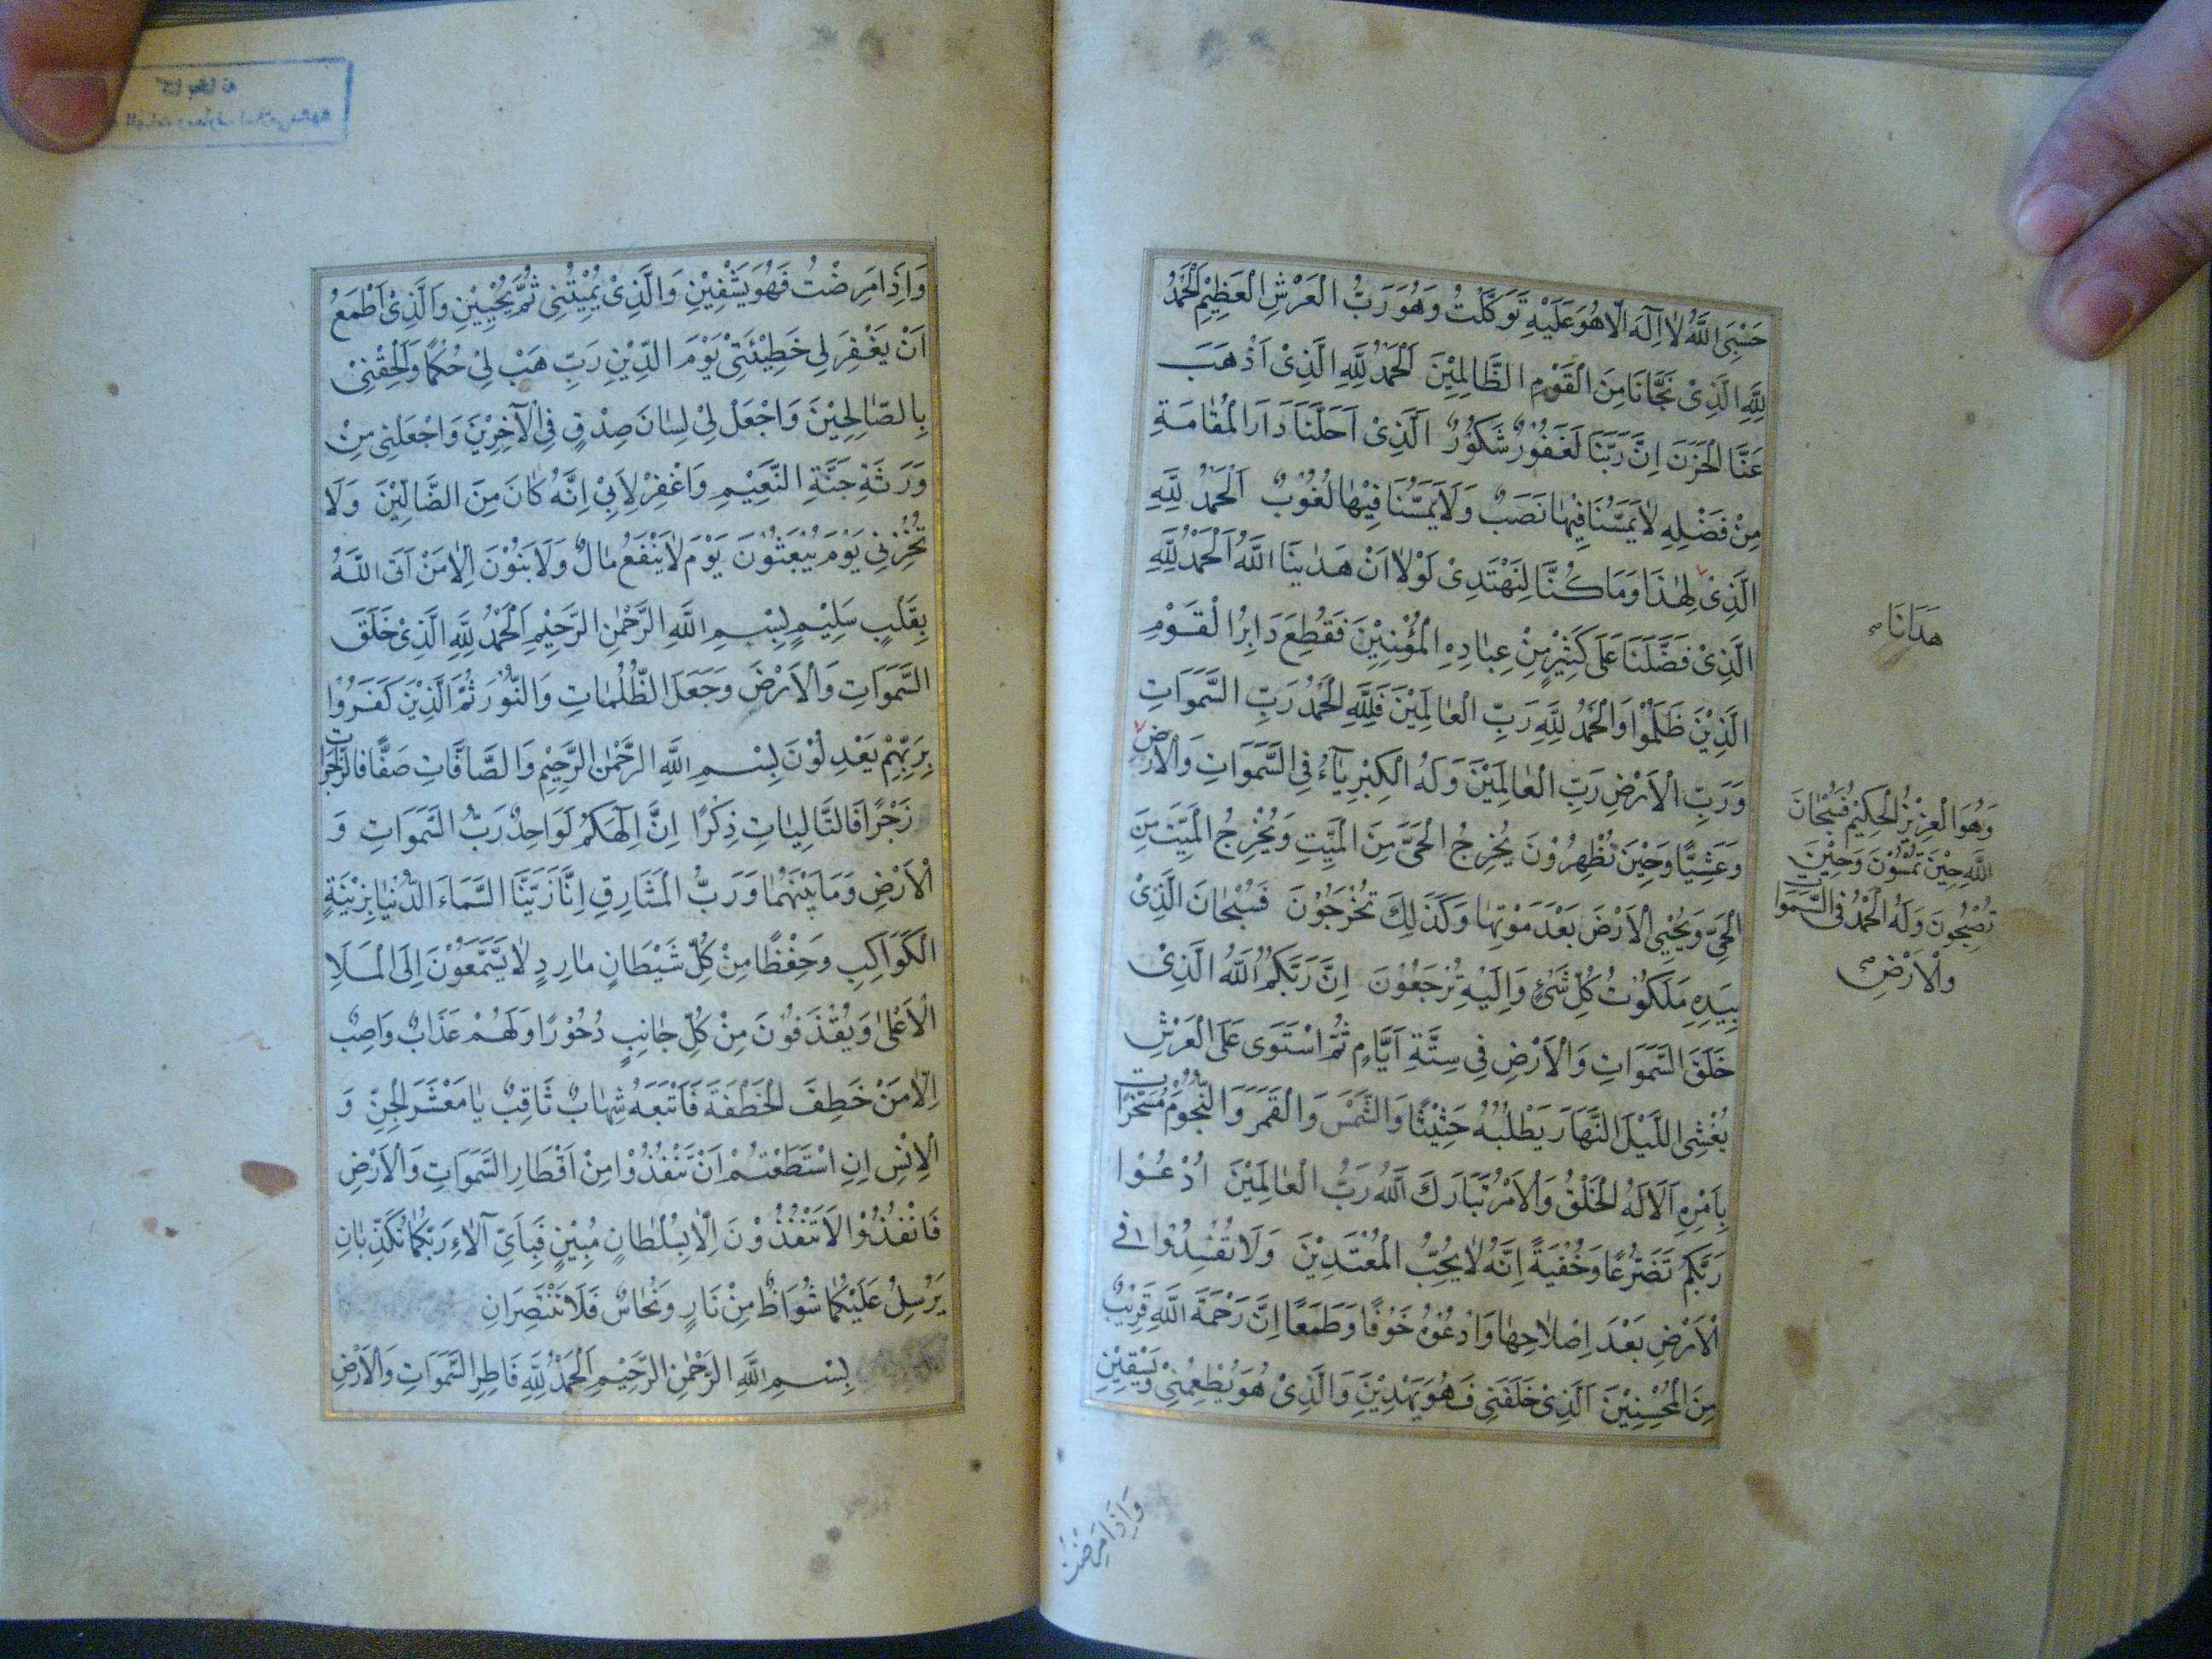 حَسْبِیَ اللَّهُ لَا اِلٓهَ اِلَّا هُوَ عَلَيْهِ تَوَكَّلْتُ وَهُوَ رَبُّ الْعَرْشِ الْعَظِيْمِ اَلْحَمْدُ
لِلَّهِ الَّذِیْ نَجَّانَا مِنَ الْقَوْمِ الظَّالِمِيْنَ اَلْحَمْدُ لِلَّهِ الَّذِیْ اَذْهَبَ
عَنَّا الْحَزَنَ اِنَّ رَبَّنَا لَغَفُوْرٌ شَكُوْرٌ الَّذِیْ اَحَلَّنَا دَارَ الْمُقَامَةِ
مِنْ فَضْلِهِ لَا يَمَسُّنَا فِيْهَا نَصَبٌ وَلَا يَمَسُّنَا فِيْهَا لُغُوْبٌ اَلْحَمْدُ لِلَّهِ
الَّذِیْ لِهٰذَا وَمَا كُنَّا لِنَهْتَدِیْ لَوْلَا اَنْ هَدٰينَا اللَّهُ اَلْحَمْدُ لِلَّهِ
هَدَانَا صح
الَّذِیْ فَضَّلَنَا عَلَى كَثِيْرٍ مِنْ عِبَادِهِ الْمُؤْمِنِيْنَ فَقُطِعَ دَابِرُ الْقَوْمِ
الَّذِيْنَ ظَلَمُوْا وَالْحَمْدُ لِلَّهِ رَبِّ الْعَالَمِيْنَ فَلِلَّهِ الْحَمْدُ رَبِّ السَّمَوَاتِ
وَرَبِّ الْاَرْضِ رَبِّ الْعَالَمِيْنَ وَلَهُ الْكِبْرِيَآءُ فِی السَّمَوَاتِ وَالْاَرْضِ
وَهُوَ الْعَزِيْزُ الْحَكِيْمُ فَسُبْحَانَ
اللَّهِ حِيْنَ تُمْسُوْنَ وَحِيْنَ
تُصْبِحُوْنَ وَلَهُ الْحَمْدُ فِی السَّمَوَاتِ
وَالْاَرْضِ صح
وَعَشِيًّا وَحِيْنَ تُظْهِرُوْنَ يُخْرِجُ الْحَیَّ مِنَ الْمَيِّتِ وَيُخْرِجُ الْمَيِّتَ مِنَ
الْحَیِّ وَيُحْيِی الْاَرْضَ بَعْدَ مَوْتِهَا وَكَذَلِكَ تُخْرَجُوْنَ فَسُبْحَانَ الَّذِیْ
بِيَدِهِ مَلَكُوْتُ كُلِّ شَیْءٍ وَاِلَيْهِ تُرْجَعُوْنَ اِنَّ رَبَّكُمُ اللَّهُ الَّذِیْ
خَلَقَ السَّمَوَاتِ وَالْاَرْضِ فِی سِتَّةِ اَيَّامٍ ثُمَّ اسْتَوَى عَلَى الْعَرْشِ
يُغْشِی اللَّيْلَ النَّهَارَ يَطْلُبُهُ حَثِيْثًا وَالشَّمْسَ وَالْقَمَرَ وَالنُّجُوْمَ مُسَخَّرَاتٍ
بِاَمْرِهِ اَلَا لَهُ الْخَلْقُ وَالْاَمْرُ تَبَارَكَ اللَّهُ رَبُّ الْعَالَمِيْنَ اُدْعُوْا
رَبَّكُمْ تَضَرُّعًا وَخُفْيَةً اِنَّهُ لَا يُحِبُّ الْمُعْتَدِيْنَ وَلَا تُفْسِدُوْا فِی
الْاَرْضِ بَعْدَ اِصْلَاحِهَا وَادْعُوْهُ خَوْفًا وَطَمَعًا اِنَّ رَحْمَةَ اللَّهِ قَرِيْبٌ
مِنَ الْمُحْسِنِيْنَ اَلَّذِیْ خَلَقَنِی فَهُوَ يَهْدِيْنِ وَالَّذِیْ هُوَ يُطْعِمُنِیْ وَيَسْقِيْنِ
وَاِذَا مَرِضْتُ
وَاِذَا مَرِضْتُ فَهُوَ يَشْفِيْنِ وَالَّذِیْ يُمِيْتُنِی ثُمَّ يُحْيِيْنِ وَالَّذِیْ اَطْمَعُ
اَنْ يَغْفِرَ لِی خَطِيْئَتِیْ يَوْمَ الدِّيْنِ رَبِّ هَبْ لِیْ حُكْمًا وَاَلْحِقْنِیْ
بِالصَّالِحِيْنَ وَاجْعَلْ لِیْ لِسَانَ صِدْقٍ فِی الْآخِرِيْنَ وَاجْعَلْنِی مِنْ
وَرَثَةِ جَنَّةِ النَّعِيْمِ وَاغْفِرْ لِاَبِیْ اِنَّهُ كَانَ مِنَ الضَّالِّيْنَ وَلَا
تُخْزِنِی يَوْمَ يُبْعَثُوْنَ يَوْمَ لَا يَنْفَعُ مَالٌ وَلَا بَنُوْنَ اِلَّا مَنْ اَتَى اللَّهَ
بِقَلْبٍ سَلِيْمٍ بِسْمِ اللَّهِ الرَّحْمٰنِ الرَّحِيْمِ اَلْحَمْدُ لِلَّهِ الَّذِیْ خَلَقَ
السَّمَوَاتِ وَالْاَرْضَ وَجَعَلَ الظُّلُمَاتِ وَالنُّوْرَ ثُمَّ الَّذِيْنَ كَفَرُوْا
بِرَبِّهِمْ يَعْدِلُوْنَ بِسْمِ اللَّهِ الرَّحْمٰنِ الرَّحِيْمِ وَالصَّافَّاتِ صَفًّا فَالزَّاجِرَاتِ
زَجْرًا فَالتَّالِيَاتِ ذِكْرًا اِنَّ اِلٰهَكُمْ لَوَاحِدٌ رَبُّ السَّمَوَاتِ وَ
الْاَرْضِ وَمَا بَيْنَهُمَا وَرَبُّ الْمَشَارِقِ اِنَّا زَيَّنَّا السَّمَاءَ الدُّنْيَا بِزِيْنَةٍ
الْكَوَاكِبِ وَحِفْظًا مِنْ كُلِّ شَيْطَانٍ مَارِدٍ لَا يَسَّمَّعُوْنَ اِلَى الْمَلَاِ
الْاَعْلَى وَيُقْذَفُوْنَ مِنْ كُلِّ جَانِبٍ دُحُوْرًا وَلَهُمْ عَذَابٌ وَاصِبٌ
اِلَّا مَنْ خَطِفَ الْخَطْفَةَ فَاَتْبَعَهُ شِهَابٌ ثَاقِبٌ يَا مَعْشَرَ الْجِنِّ وَ
الْاِنْسِ اِنِ اسْتَطَعْتُمْ اَنْ تَنْفُذُوْا مِنْ اَقْطَارِ السَّمَوَاتِ وَالْاَرْضِ
فَانْفُذُوْا لَا تَنْفُذُوْنَ اِلَّا بِسُلْطَانٍ مُبِيْنٍ فَبِاَیِّ آلَاءِ رَبِّكُمَا تُكَذِّبَانِ
يُرْسِلُ عَلَيْكُمَا شُوَاظٌ مِنْ نَارٍ وَنُحَاسٌ فَلَا تَنْتَصِرَانِ
بِسْمِ اللَّهِ الرَّحْمٰنِ الرَّحِيْمِ اَلْحَمْدُ لِلَّهِ فَاطِرِ السَّمَوَاتِ وَالْاَرْضِ